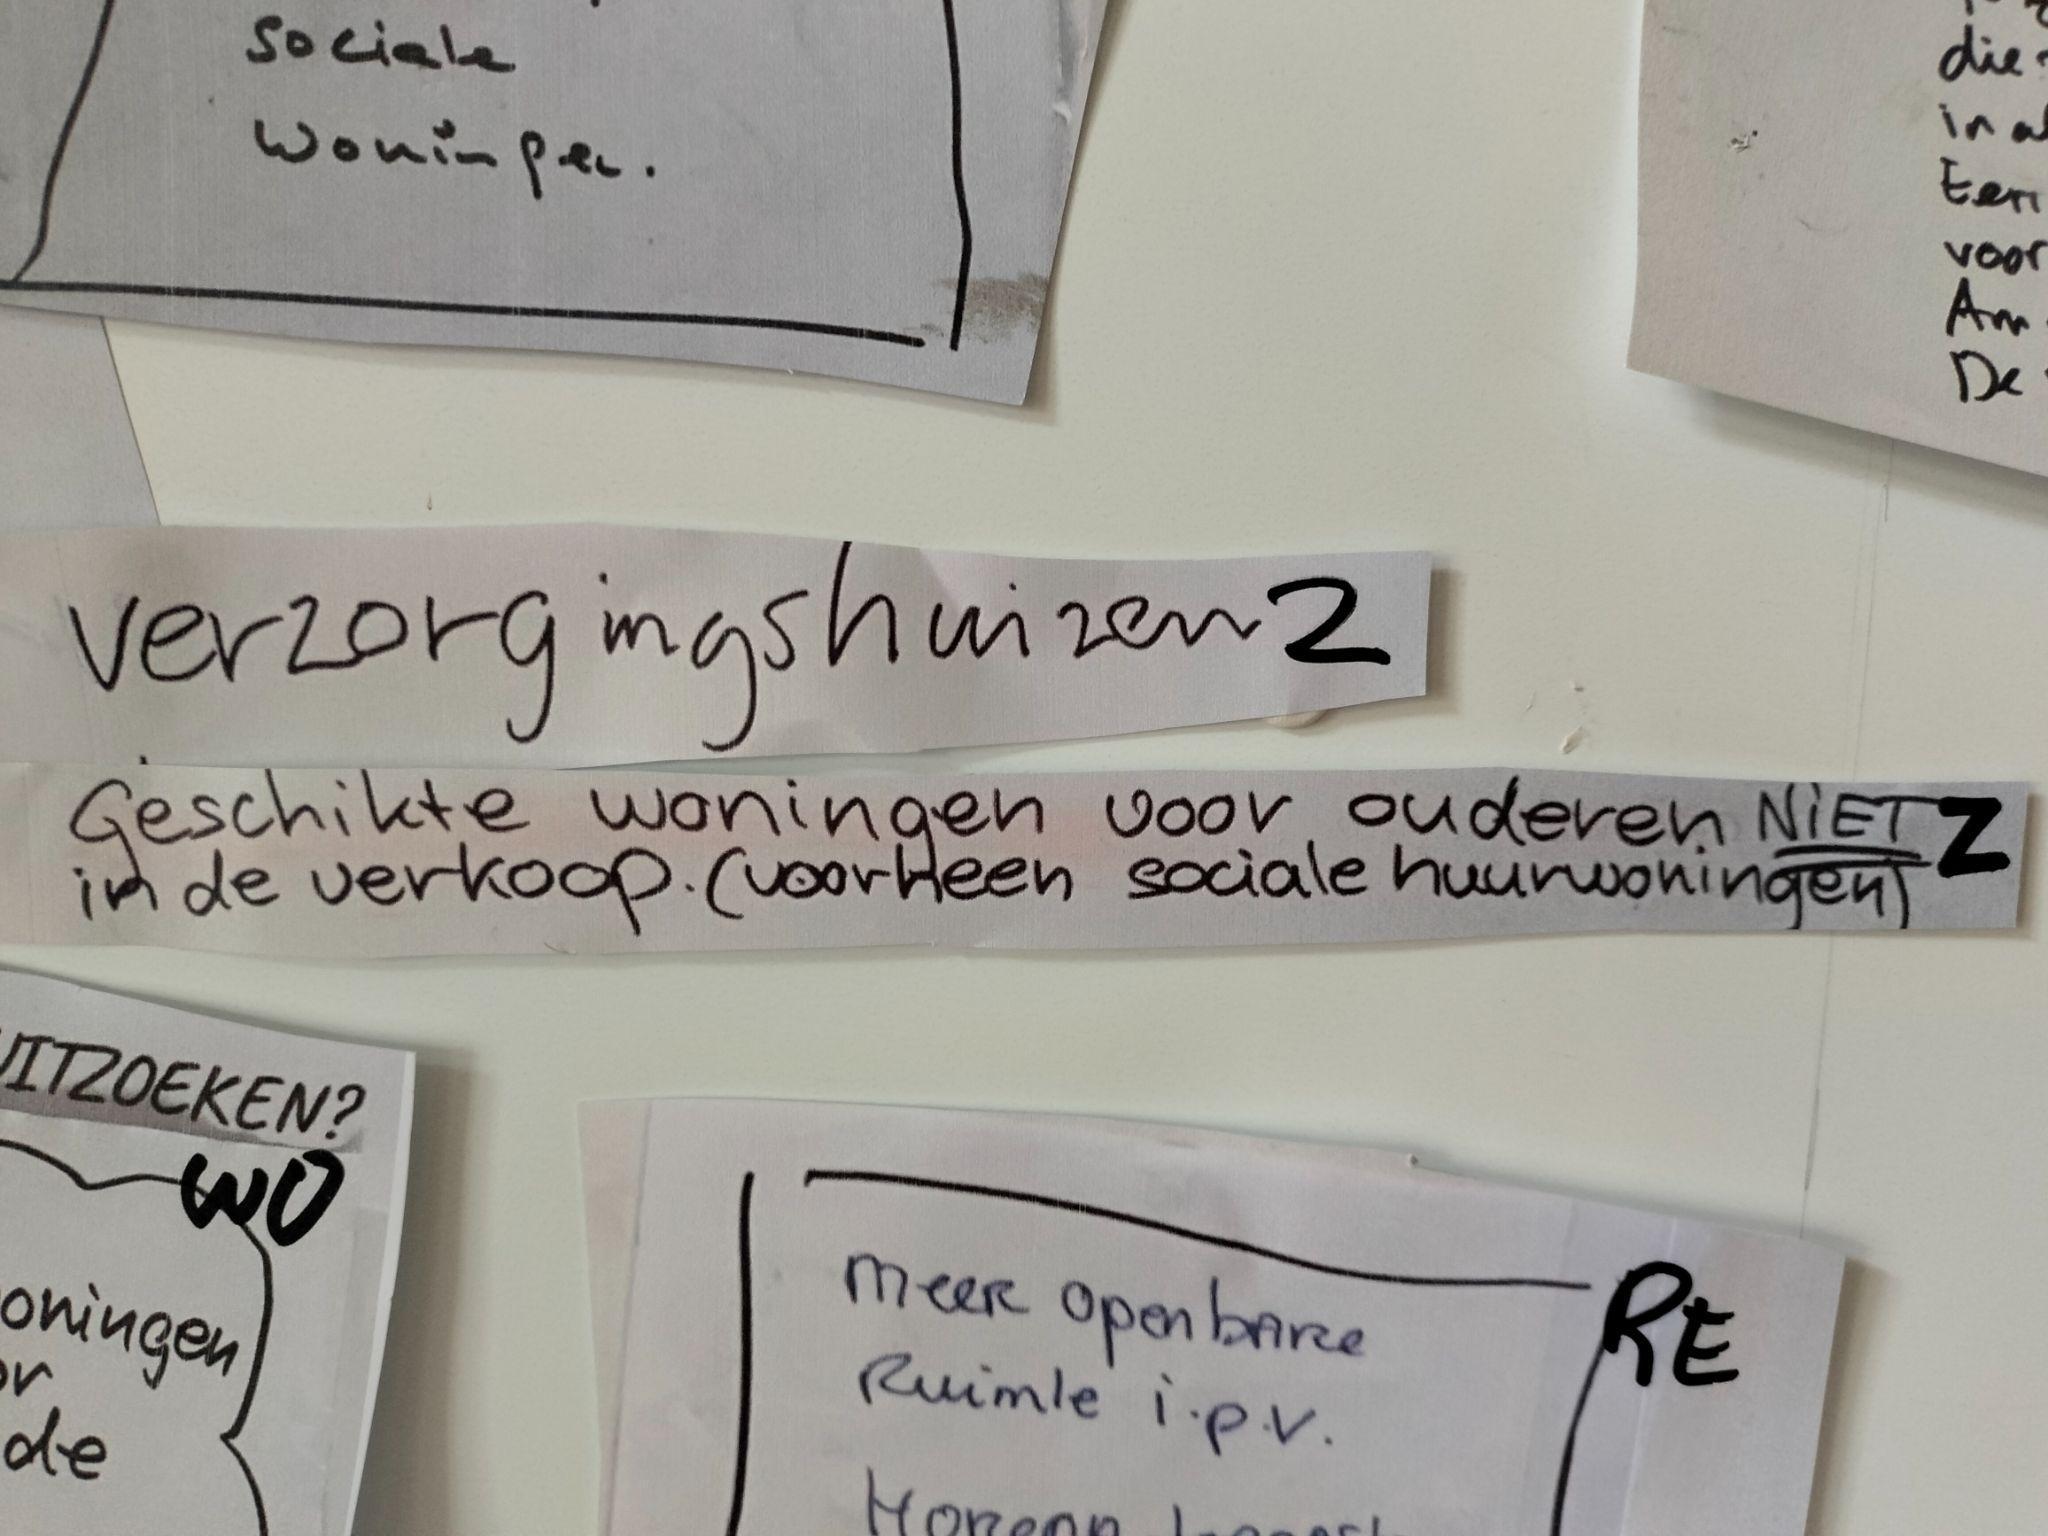 sociale
woningen.
die
in al
Een
voor
Am
De
verzorgingshuizen Z
Geschikte woningen voor ouderen NIET Z
in de verkoop. (voorheen sociale huurwoningen)
UITZOEKEN?
WO
oningen
or
de
RE
meer openbare
Ruimte i.p.v.